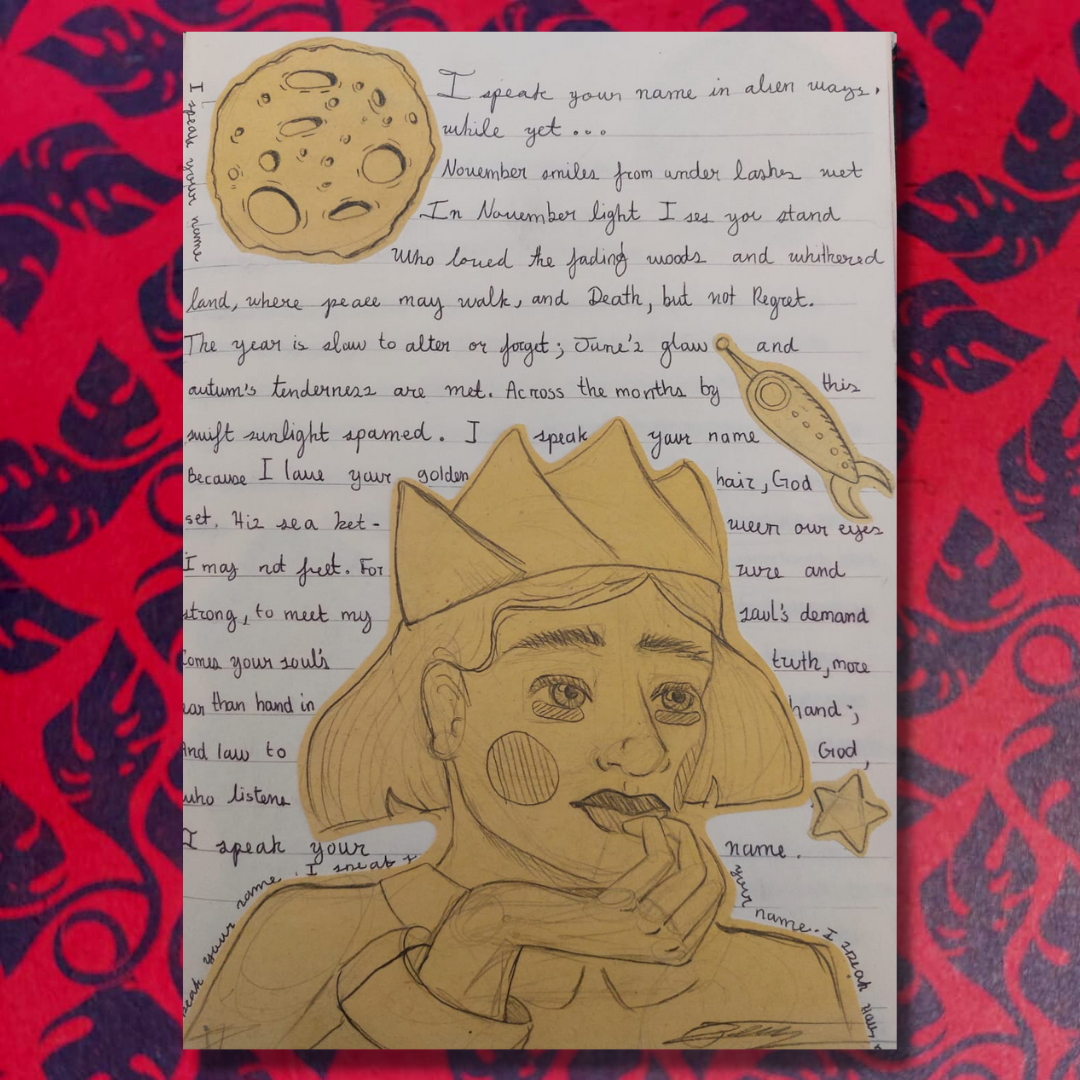 I speak your name
I speak your name in alien ways,
while yet ...
November smiles from under lashes wet
In November light I see you stand
Who loved the fading woods and whithered
land, where peace may walk, and Death, but not Regret.
The year is slow to alter or forget; June's glow and
autum's tenderness are met. Across the months by this
swift sunlight spanned. I speak your name
Because I love your golden hair, God
set. His sea bet- ween our eyes
I may not fret. For sure and
strong, to meet my soul's demand
Comes your soul's truth, more
than hand in hand;
And low to God,
who listens
I speak your name.
speak your name. I speak your name. I speak your